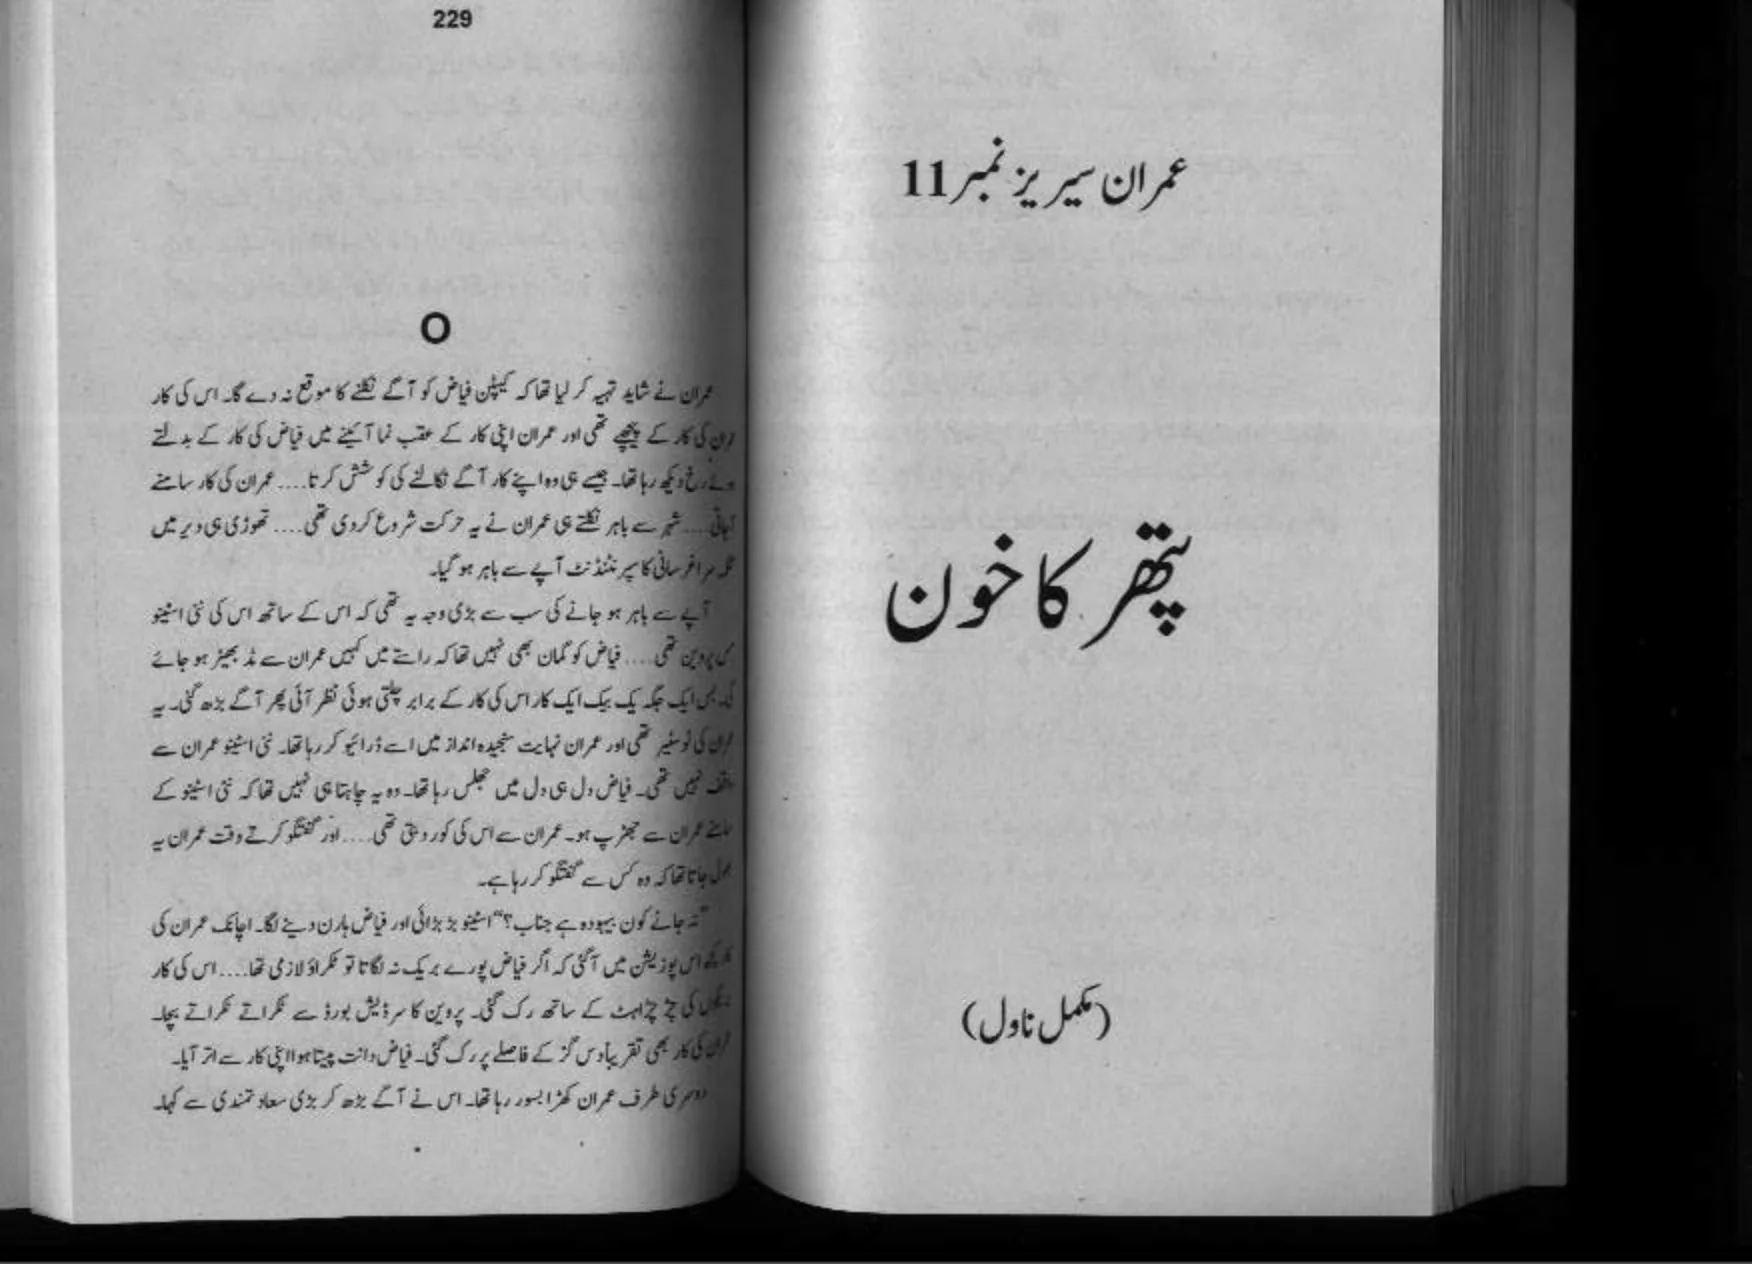 عمران سیریز نمبر 11
پتھر کا خون
(مکمل ناول)
229
O
عمران نے شاید تہیہ کر لیا تھا کہ کیپٹن فیاض کو آگے نکلنے کا موقع نہ دے گا۔ اس کی کار
کی کار کے پیچھے تھی اور عمران اپنی کار کے عقب نما آئینے میں فیاض کی کار کے بدلتے
رخ دیکھ رہا تھا۔ جیسے ہی وہ اپنے کار آگے نکالنے کی کوشش کرتا.... عمران کی کار سامنے
آجاتی.... شہر سے باہر نکلتے ہی عمران نے یہ حرکت شروع کردی تھی.... تھوڑی ہی دیر میں
سراغرسانی کا سپرنٹنڈنٹ آپے سے باہر ہو گیا۔
آپے سے باہر ہو جانے کی سب سے بڑی وجہ یہ تھی کہ اس کے ساتھ اس کی نئی اسٹینو
مس پروین تھی.... فیاض کو گمان بھی نہیں تھا کہ راستے میں کہیں عمران سے مڈ بھیڑ ہو جائے
گی۔ بس ایک جگہ یک بیک ایک کار اس کی کار کے برابر چلتی ہوئی نظر آئی پھر آگے بڑھ گئی۔ یہ
عمران کی ٹوسیٹر تھی اور عمران نہایت سنجیدہ انداز میں اسے ڈرائیو کر رہا تھا۔ نئی اسٹینو عمران سے
واقف نہیں تھی۔ فیاض دل ہی دل میں جھلس رہا تھا۔ وہ یہ چاہتا ہی نہیں تھا کہ نئی اسٹینو کے
سامنے عمران سے جھڑپ ہو۔ عمران سے اس کی کور دبتی تھی.... اور گفتگو کرتے وقت عمران یہ
بھول جاتا تھا کہ وہ کس سے گفتگو کر رہا ہے۔
"نہ جانے کون بیہودہ ہے جناب؟" اسٹینو بڑبڑائی اور فیاض ہارن دینے لگا۔ اچانک عمران کی
کار کچھ اس پوزیشن میں آگئی کہ اگر فیاض پورے بریک نہ لگاتا تو ٹکراؤ لازمی تھا.... اس کی کار
کی چڑچڑاہٹ کے ساتھ رک گئی۔ پروین کا سر ڈیش بورڈ سے ٹکراتے ٹکراتے بچا۔
عمران کی کار بھی تقریباً دس گز کے فاصلے پر رک گئی۔ فیاض دانت پیستا ہوا اپنی کار سے اتر آیا۔
دوسری طرف عمران کھڑا بسور رہا تھا۔ اس نے آگے بڑھ کر بڑی سعادتمندی سے کہا۔